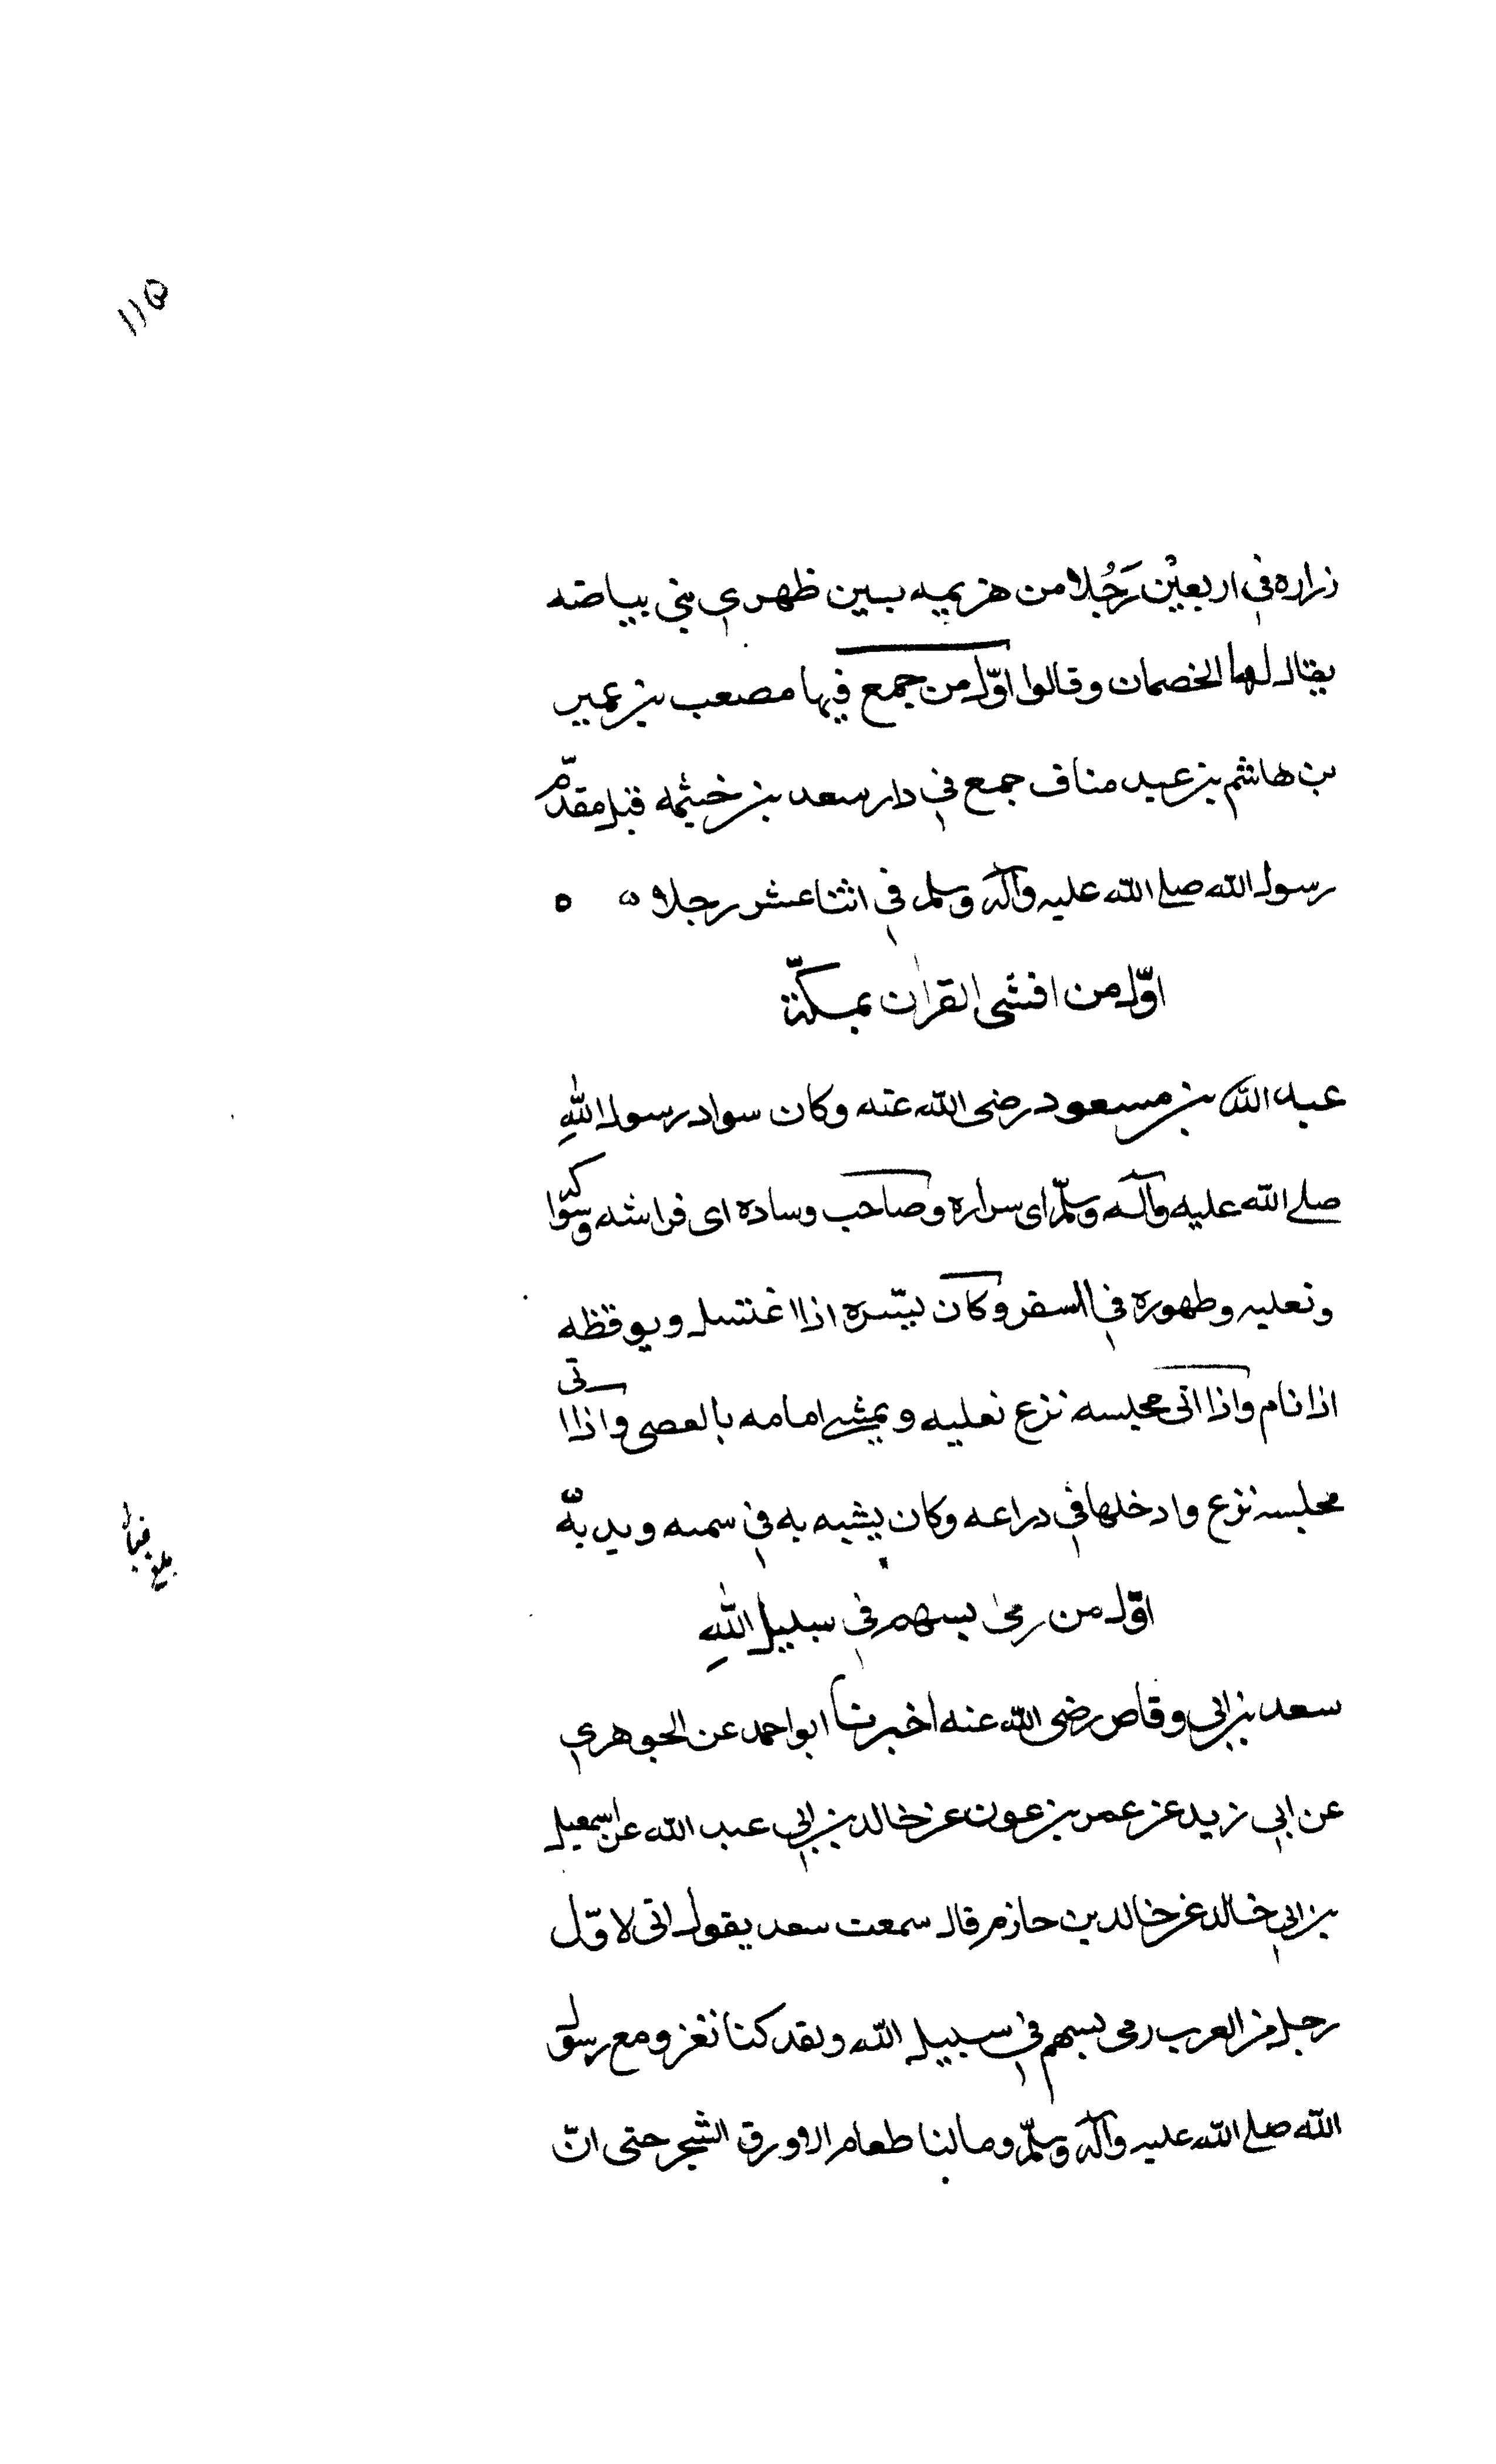 ١١٥
زراره في اربعين رَجُلا من هزيميه بين ظهري بني بياضه
يقال لها الخصمان وقالوا اوّل من جمع فيها مصعب بن عمير
بن هاشم بن عبد مناف جمع في دار سعد بن خيثمه قبل مقدّم
رسول الله صلى الله عليه وآله وسلم في اثنا عشر رجلا ه ه
اوّل من افشى القران بمكّة
عبد الله بن مسعود رضى الله عنه وكان سواد رسول اللهِ
صلى الله عليه وآله وسلّم اى سراره وصاحب وساده اى فراشه وسواكه
ونعليه وطهوره في السفر وكان يستره اذا اغتسل ويوقظه
اذا نام واذا اتى مجلسه نزع نعليه ويمشى امامه بالعصى واذا اتى
مجلسه نزع وادخلها في دراعه وكان يشبه به في سمته وهديه
اوّل من رمى بسهم في سبيل اللهِ
سعد بن ابي وقاص رضى الله عنه اخبرنا ابو احمد عن الجوهري
عن ابي زيد عن عمر بن عون عن خالد بن ابي عبد الله عن اسمعيل
بن ابي خالد عن خالد بن حازم قال سمعت سعد يقول انى لاوّل
رجل من العرب رمى بسهم في سبيل الله ولقد كنا نغزو مع رسول
الله صلى الله عليه وآله وسلّم وما لنا طعام الا ورق الشجر حتى انّ